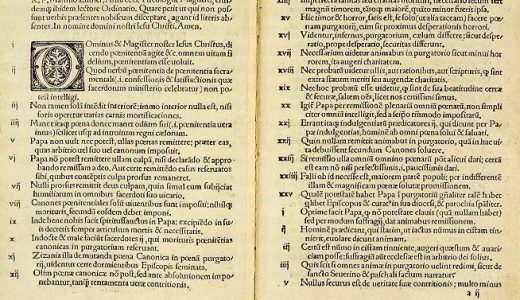 demq̃ ibidem lectore Ordinario. Quare petit ut qui non pos
sunt uerbis præsentes nobiscum disceptare, agant id literis ab
sentes. In nomine domini nostri Iesu Christi. Amen.
i DOminus & Magister noster Iesus Christus, di
cendo pœnitentiã agite &c. omnem uitam fi
delium, pœnitentiam esse uoluit.
ij Quod uerbũ de pœnitentia sacramentali
(.i. confessionis & satisfactionis quæ
sacerdotum ministerio celebratur) non po
test intelligi.
iij Non tamen solã intẽdit interiorẽ: immo interior nulla est, nisi
foris operetur uarias carnis mortificationes.
iiij Manet itaq; pœna donec manet odium sui (.i. pœnitentia uera
intus) scilicet usq; ad introitum regni cælorum.
v Papa non uult nec potest, ullas pœnas remittere; præter eas,
quas arbitrio uel suo uel canonum imposuit.
vi Papa nõ potest remittere ullam culpã, nisi declarãdo & appro
bando remissam a deo. Aut certe remittẽdo casus reseruatos
sibi, quibus cõtẽptis culpa prorsus remaneret.
vij Nulli prorsus remittit deus culpam, quin simul eum subijciat
humiliatum in omnibus sacerdoti suo uicario.
viij Canones pœnitentiales solũ uiuentibus sunt impositi; nihilq;
morituris, secundũ eosdem debet imponi.
ix Inde bene nobis facit spiritussanctus in Papa: excipiẽdo in su
is decretis semper articulum mortis & necessitatis.
x Indocte & male faciũt sacerdotes ij, qui morituris pœnitẽtias
canonicas in purgatorium reseruant.
xi Zizania illa de mutanda pœna Canonica in pœnã purgato
rij, uidentur certe dormientibus Episcopis seminata.
xij Olim pœnæ canonicæ nõ post, sed ante absolutionem impo
nebantur, tanq̃ tentamenta ueræ contritionis.
xv Hic timor & horror, satis est, se solo (ut alia taceam) facere pœ
nam purgatorij, cum sit proximus desperationis horrori.
xvi Videntur, infernus, purgatorium, cælum differre; sicut despera
tio, prope desperatio, securitas differunt.
xvij Necessarium uidetur animabus in purgatorio sicut minui hor
rorem, ita augeri charitatem.
xviij Nec probatum uidetur ullis, aut rationibus, aut scripturis, q̃ sint
extra statum meriti seu augendæ charitatis.
xix Nec hoc probatum esse uidetur, q̃ sint de sua beatitudine certæ
& securæ, saltem oẽs, licet nos certissimi simus.
xx Igiť Papa per remissionẽ plenariã omniũ pœnarũ, non simplici
ter omniũ intelligit, sed a seipso tantũmodo impositarũ.
xxi Errant itaq; indulgentiarũ prædicatores ij, qui dicunt per Pa
pæ indulgentias, hominẽ ab omni pœna solui & saluari.
xxij Quin nullam remittit animabus in purgatorio, quã in hac ui
ta debuissent secundum Canones soluere.
xxiij Si remissio ulla omniũ omnino pœnarũ põt alicui dari; certũ
est eam nõ nisi perfectissimis, i. paucissimis, dari.
xxiiij Falli ob id necesse est, maiorem partẽ populi: per indifferentẽ
illam & magnificam pœnæ solutæ promissionem.
xxv Qualẽ potestatẽ habet Papa ĩ purgatoriũ gñaliter talẽ habet q̃
libet Episcopus & curat⁹ in sua diocesi, & parochia specialiter.
i Optime facit Papa, q̃ nõ potestate clauis (quã nullam habet)
sed per modum suffragij, dat animabus remissionem.
ij Hominẽ prædicant, qui statim, ut iactus nũmus in cistam tinnie
rit, euolare dicunt animam.
iij Certũ est nũmo in cistam tinniente, augeri quæstum & auari
ciam posse; suffragiũ aũt ecclesiæ est in arbitrio dei solius.
iiij Quis scit si omnes animæ in purgatorio uelint redimi, sicut de
sancto Seuerino & paschali factum narratur.
v Nullus securus est de ueritate suæ contritionis; multo minus
a ij